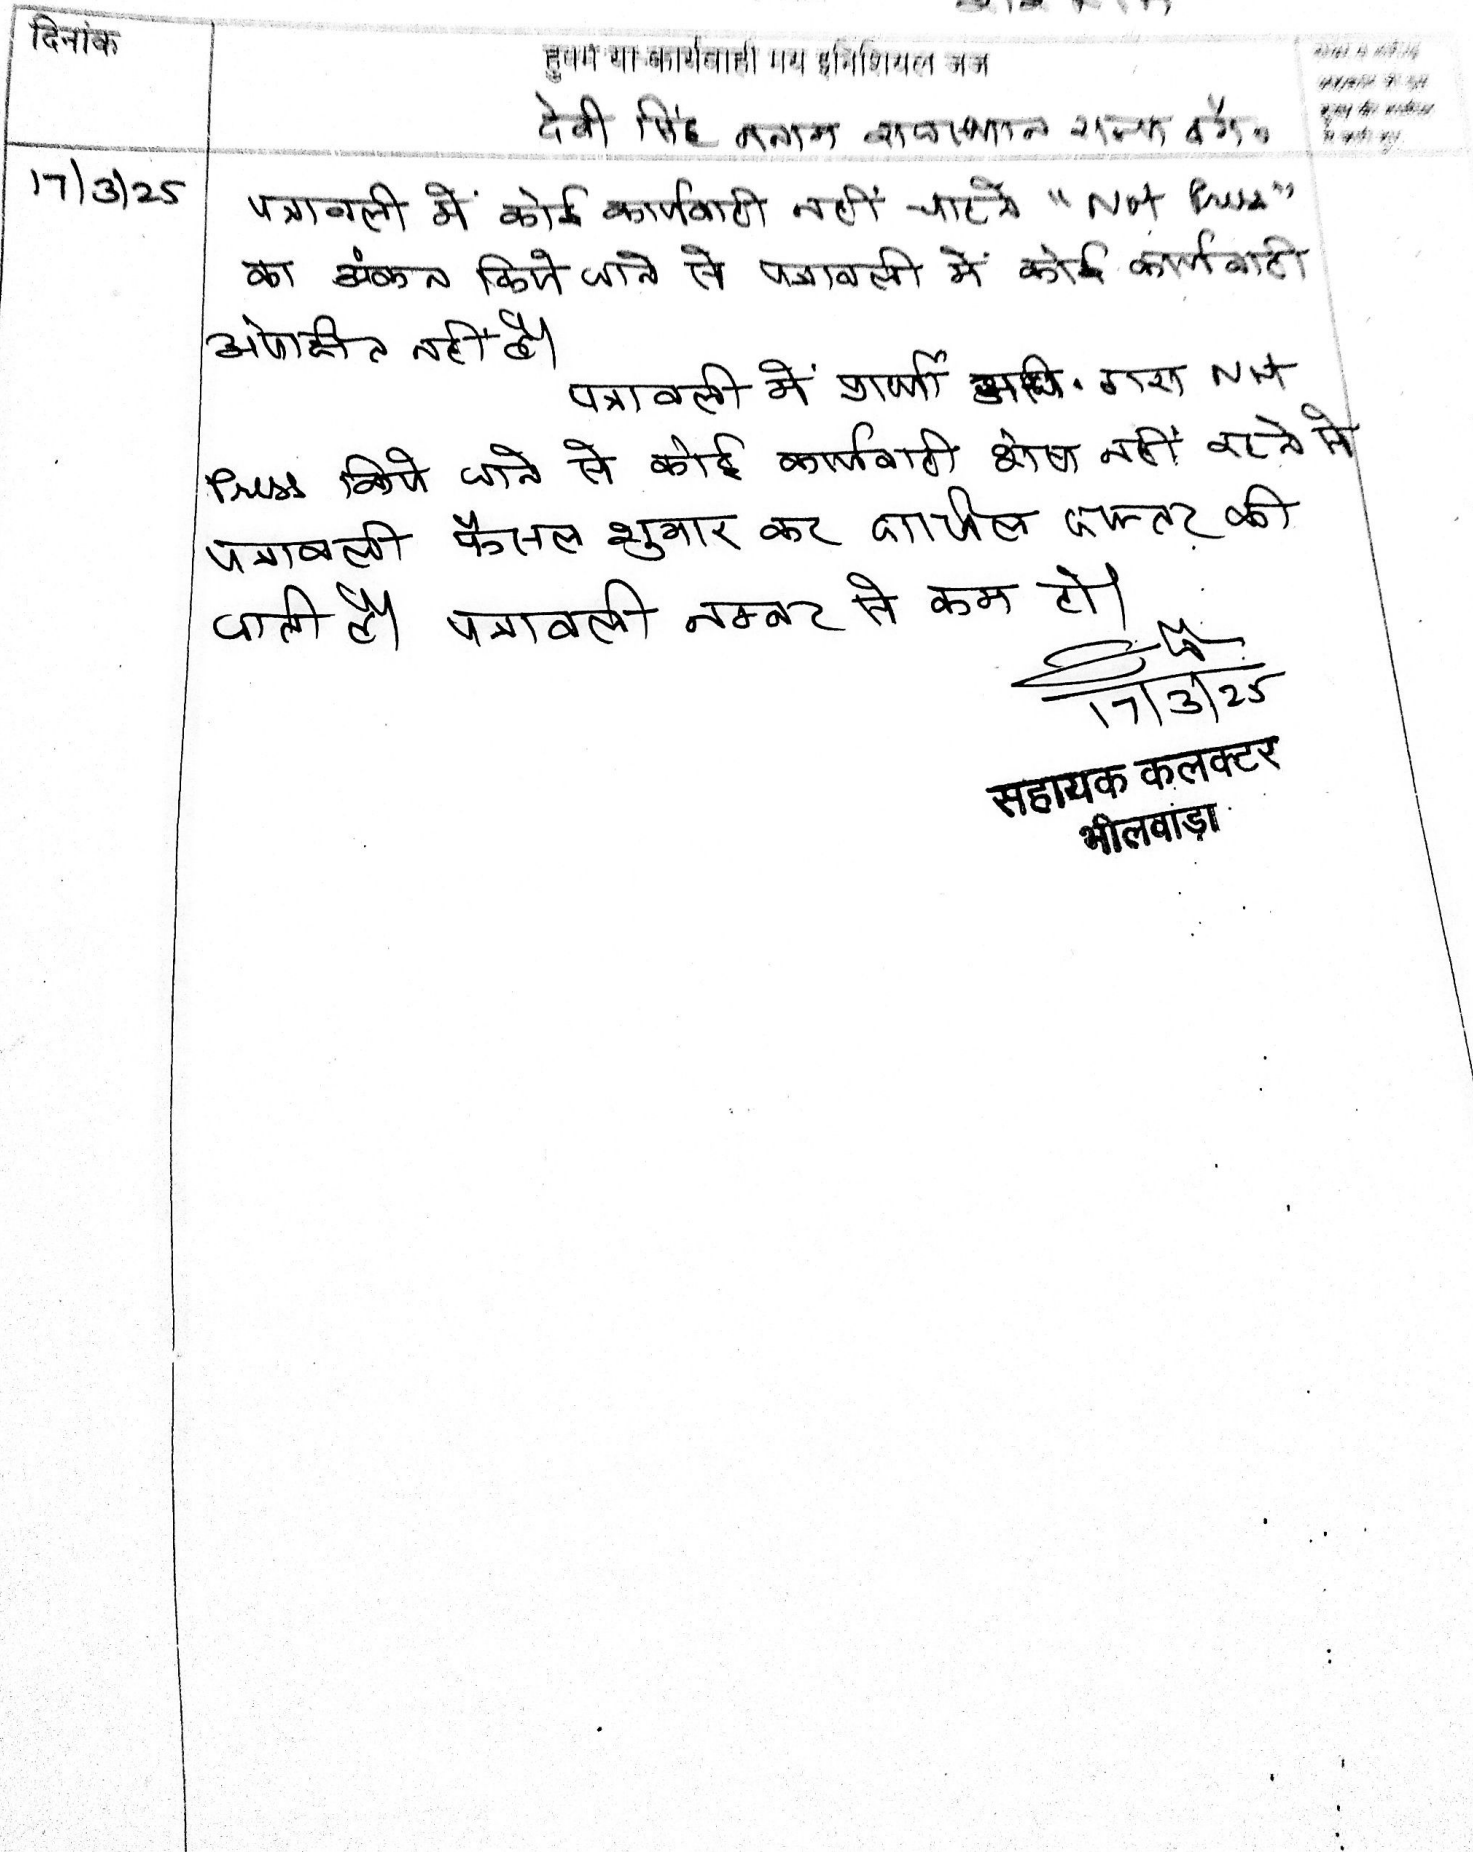 दिनांक
हुक्म या कार्यवाही मय इनिशियल जज
देवी सिंह बनाम राजस्थान राज्य वगै०
17/3/25
पत्रावली में कोई कार्यवाही नहीं चाहने "Not Press"
का अंकन किये जाने से पत्रावली में कोई कार्यवाही
अपेक्षित नहीं है।
पत्रावली में प्रार्थी अधि. द्वारा Not
Press किये जाने से कोई कार्यवाही शेष नहीं रहने से
पत्रावली फैसल शुमार कर दाखिल दफ्तर की
जाती है। पत्रावली नम्बर से कम हो।
17/3/25
सहायक कलक्टर
भीलवाड़ा